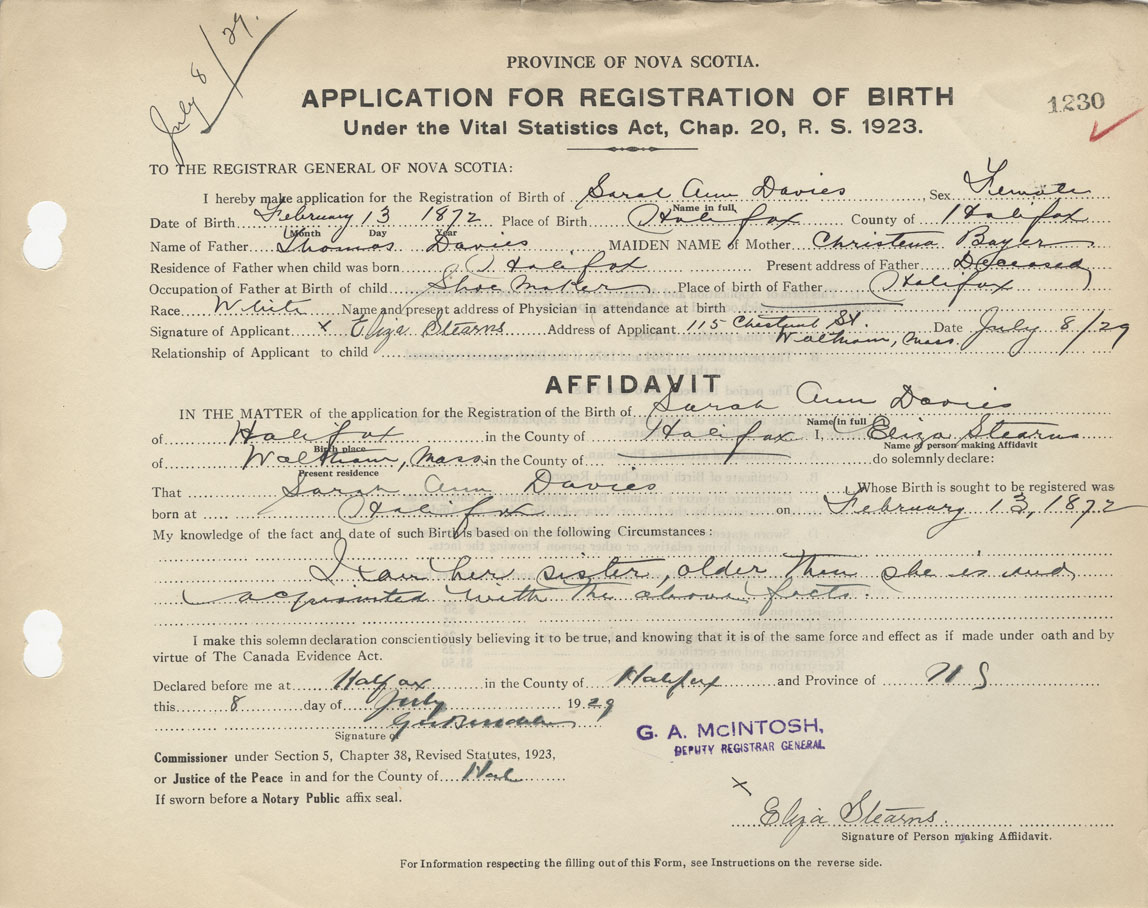 July 8/29.
PROVINCE OF NOVA SCOTIA.
APPLICATION FOR REGISTRATION OF BIRTH
1230
Under the Vital Statistics Act, Chap. 20, R. S. 1923.
TO THE REGISTRAR GENERAL OF NOVA SCOTIA:
I hereby make application for the Registration of Birth of Sarah Ann Davies, Sex Female
Name in full
Date of Birth February 13 1872 Place of Birth Halifax County of Halifax
Month Day Year
Name of Father Thomas Davies MAIDEN NAME of Mother Christena Bayer
Residence of Father when child was born Halifax Present address of Father Deceased
Occupation of Father at Birth of child Shoe Maker Place of birth of Father Halifax
Race White Name and present address of Physician in attendance at birth
Signature of Applicant x Eliza Stearns Address of Applicant 115 Chestnut St. Date July 8/29
Waltham, Mass.
Relationship of Applicant to child
AFFIDAVIT
IN THE MATTER of the application for the Registration of the Birth of Sarah Ann Davies
Name in full
of Halifax in the County of Halifax I, Eliza Stearns
Birth place Name of person making Affidavit
of Waltham, Mass. in the County of do solemnly declare:
Present residence
That Sarah Ann Davies Whose Birth is sought to be registered was
born at Halifax on February 13, 1872
My knowledge of the fact and date of such Birth is based on the following Circumstances:
I am her sister, older than she is and
acquainted with the above facts.
I make this solemn declaration conscientiously believing it to be true, and knowing that it is of the same force and effect as if made under oath and by
virtue of The Canada Evidence Act.
Declared before me at Halifax in the County of Halifax and Province of N S
this 8 day of July 1929
Signature of
G. A. McINTOSH,
DEPUTY REGISTRAR GENERAL
Commissioner under Section 5, Chapter 38, Revised Statutes, 1923,
or Justice of the Peace in and for the County of
If sworn before a Notary Public affix seal.
x
Eliza Stearns.
Signature of Person making Affidavit.
For Information respecting the filling out of this Form, see Instructions on the reverse side.